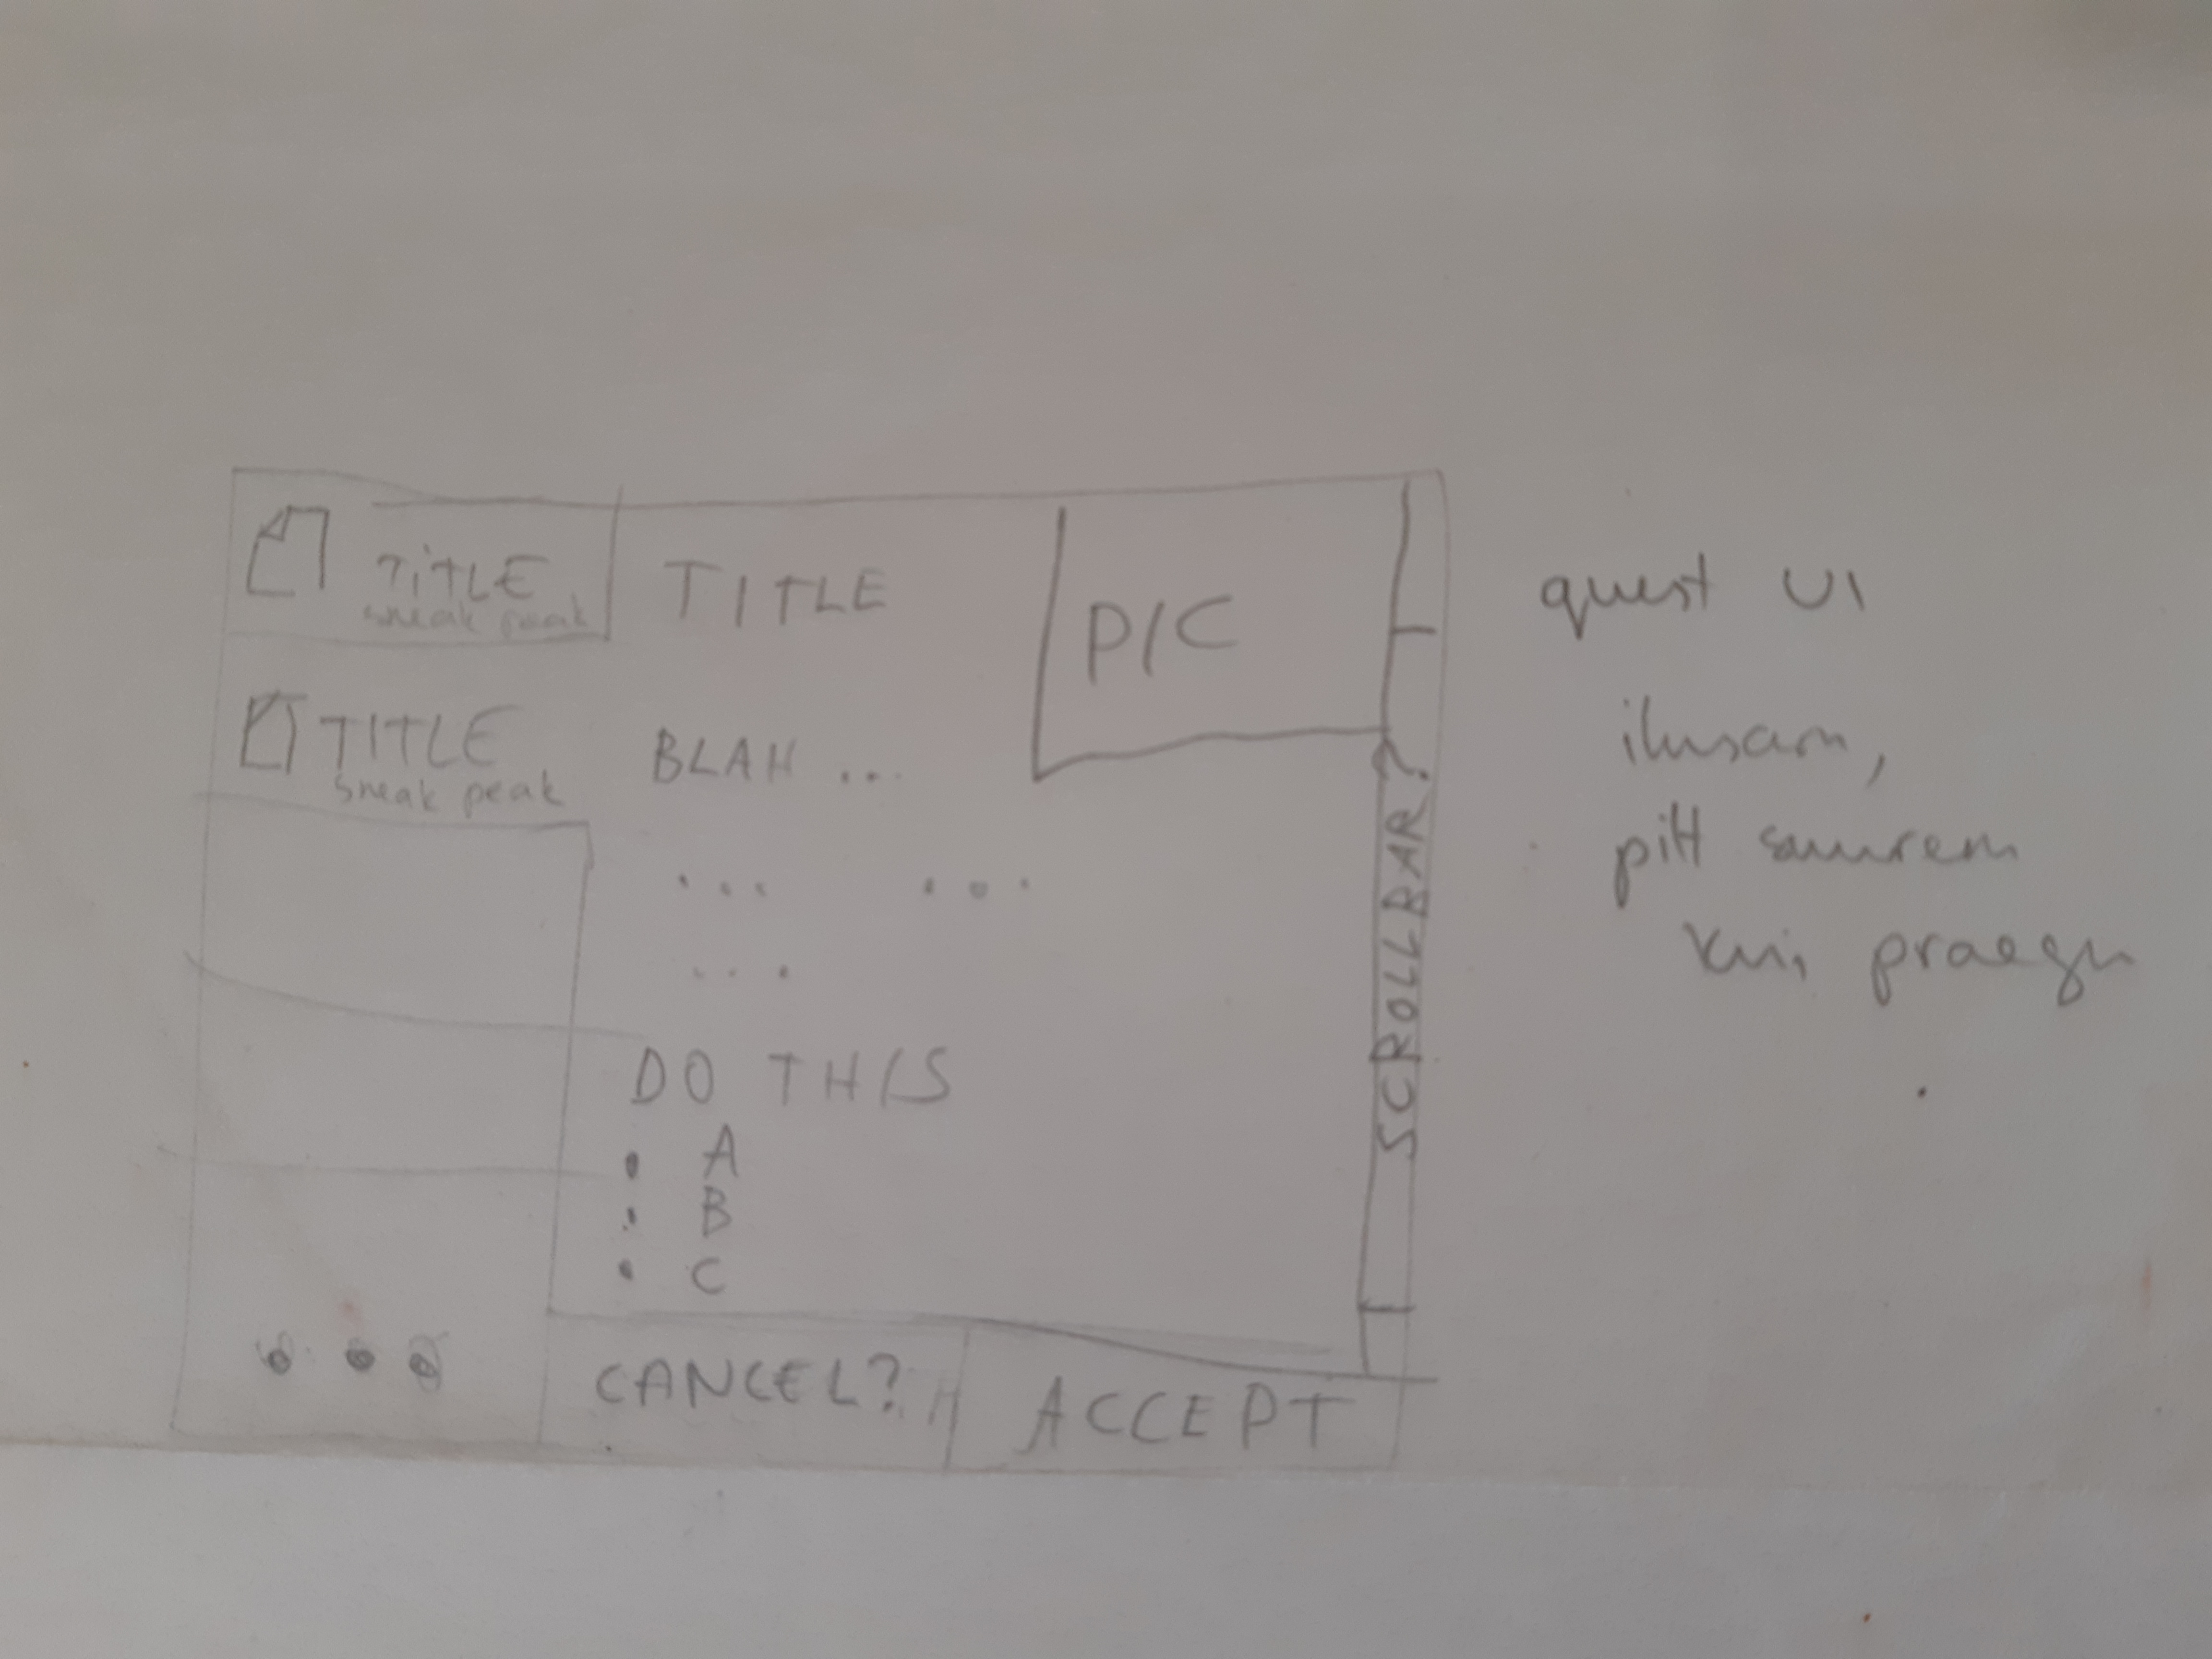 TiTLE
sneak peak
TITLE
sneak peak
TITLE
PIC
BLAH ...
... ...
...
DO THIS
• A
• B
• C
SCROLLBAR?
...
CANCEL?
ACCEPT
quest UI
ilusam,
pilt suurem
kui praegu